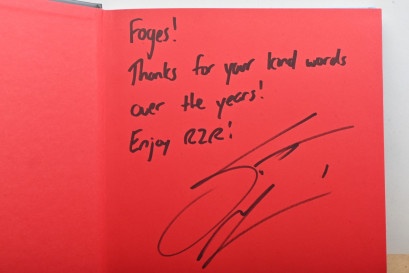 Foges!
Thanks for your kind words
over the years!
Enjoy R2R!